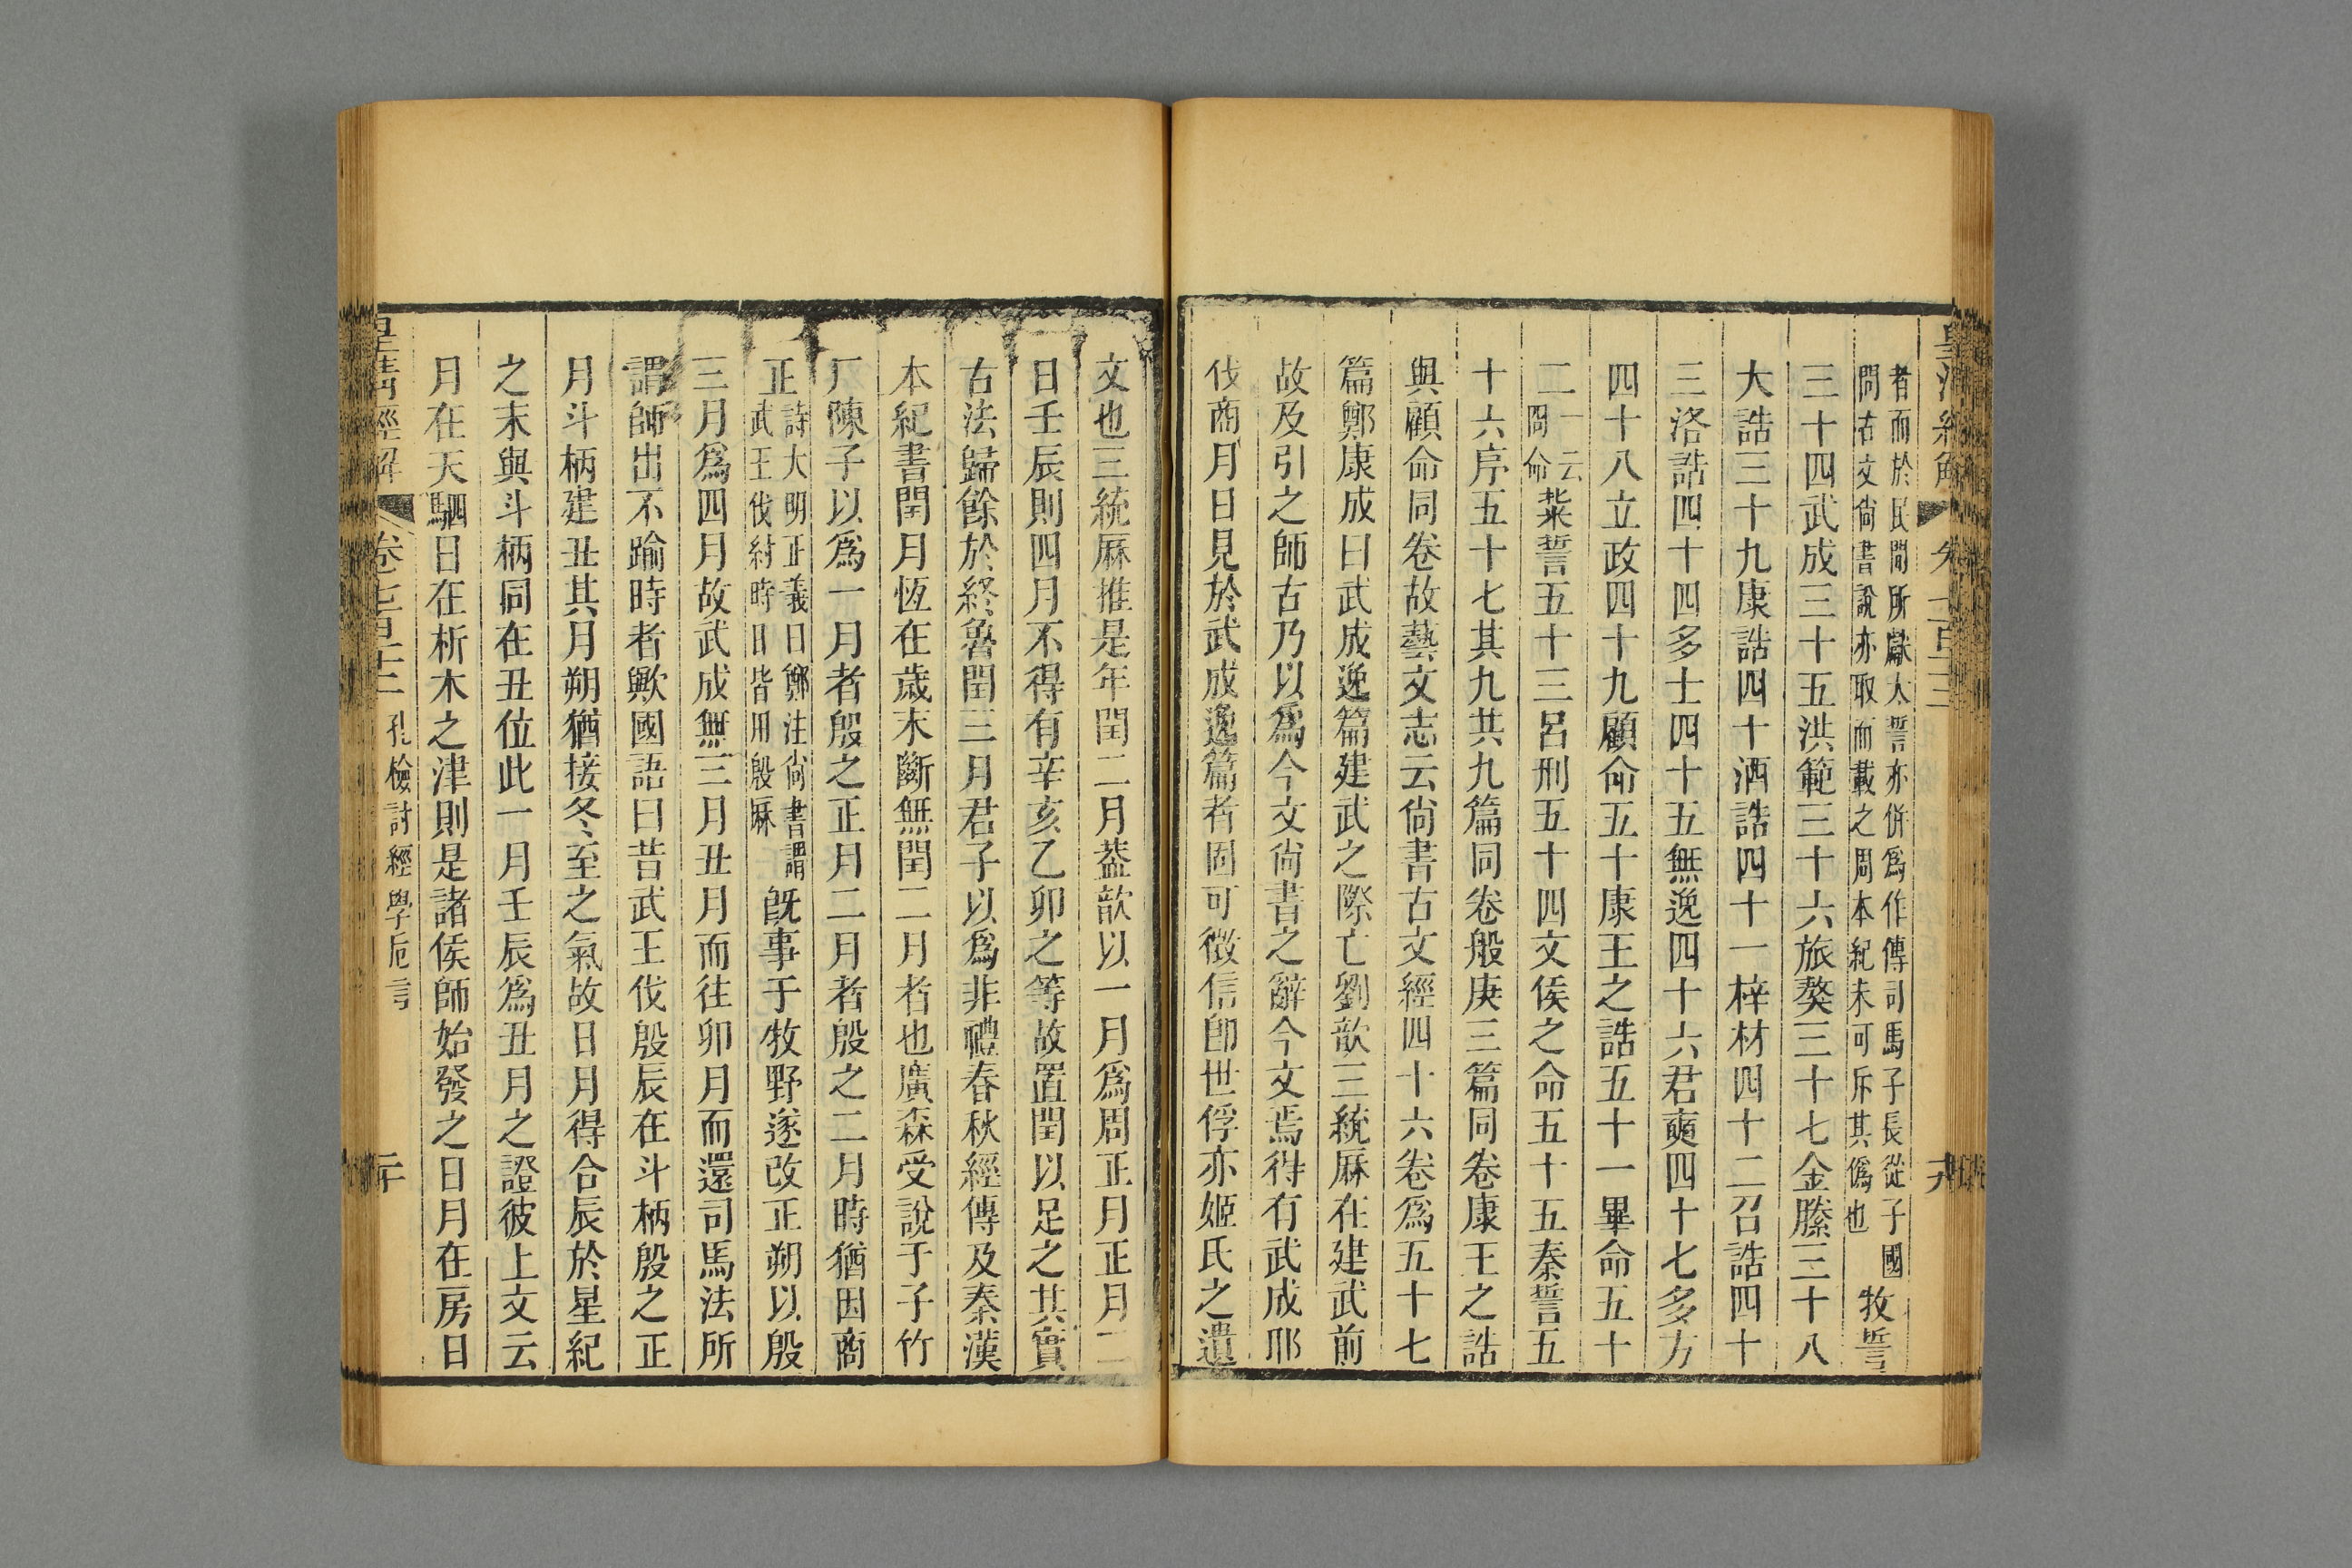 者而於民間所獻太誓亦併爲作傳司馬子長從子國
問古文尚書說亦取而載之周本紀未可斥其僞也
牧誓
三十四武成三十五洪範三十六旅獒三十七金縢三十八
大誥三十九康誥四十酒誥四十一梓材四十二召誥四十
三洛誥四十四多士四十五無逸四十六君奭四十七多方
四十八立政四十九顧命五十康王之誥五十一畢命五十
二
一云
冏命
粊誓五十三呂刑五十四文侯之命五十五秦誓五
十六序五十七其九共九篇同卷般庚三篇同卷康王之誥
與顧命同卷故藝文志云尚書古文經四十六卷爲五十七
篇鄭康成曰武成逸篇建武之際亡劉歆三統厤在建武前
故及引之師古乃以爲今文尚書之辭今文焉得有武成耶
伐商月日見於武成逸篇者固可徵信卽世俘亦姬氏之遺
文也三統厤推是年閏二月葢歆以一月爲周正月正月二
日壬辰則四月不得有辛亥乙卯之等故置閏以足之其實
古法歸餘於終魯閏三月君子以爲非禮春秋經傳及秦漢
本紀書閏月恆在歲末斷無閏二月者也廣森受說于子竹
厂陳子以爲一月者殷之正月二月者殷之二月時猶因商
正
詩大明正義曰鄭注尚書謂
武王伐紂時日皆用殷厤
旣事于牧野遂改正朔以殷
三月爲四月故武成無三月丑月而往卯月而還司馬法所
謂師出不踰時者歟國語曰昔武王伐殷辰在斗柄殷之正
月斗柄建丑其月朔猶接冬至之氣故日月得合辰於星紀
之末與斗柄同在丑位此一月壬辰爲丑月之證彼上文云
月在天駟日在析木之津則是諸侯師始發之日月在房日
皇清經解
卷七百十三
孔檢討經學卮言
二十